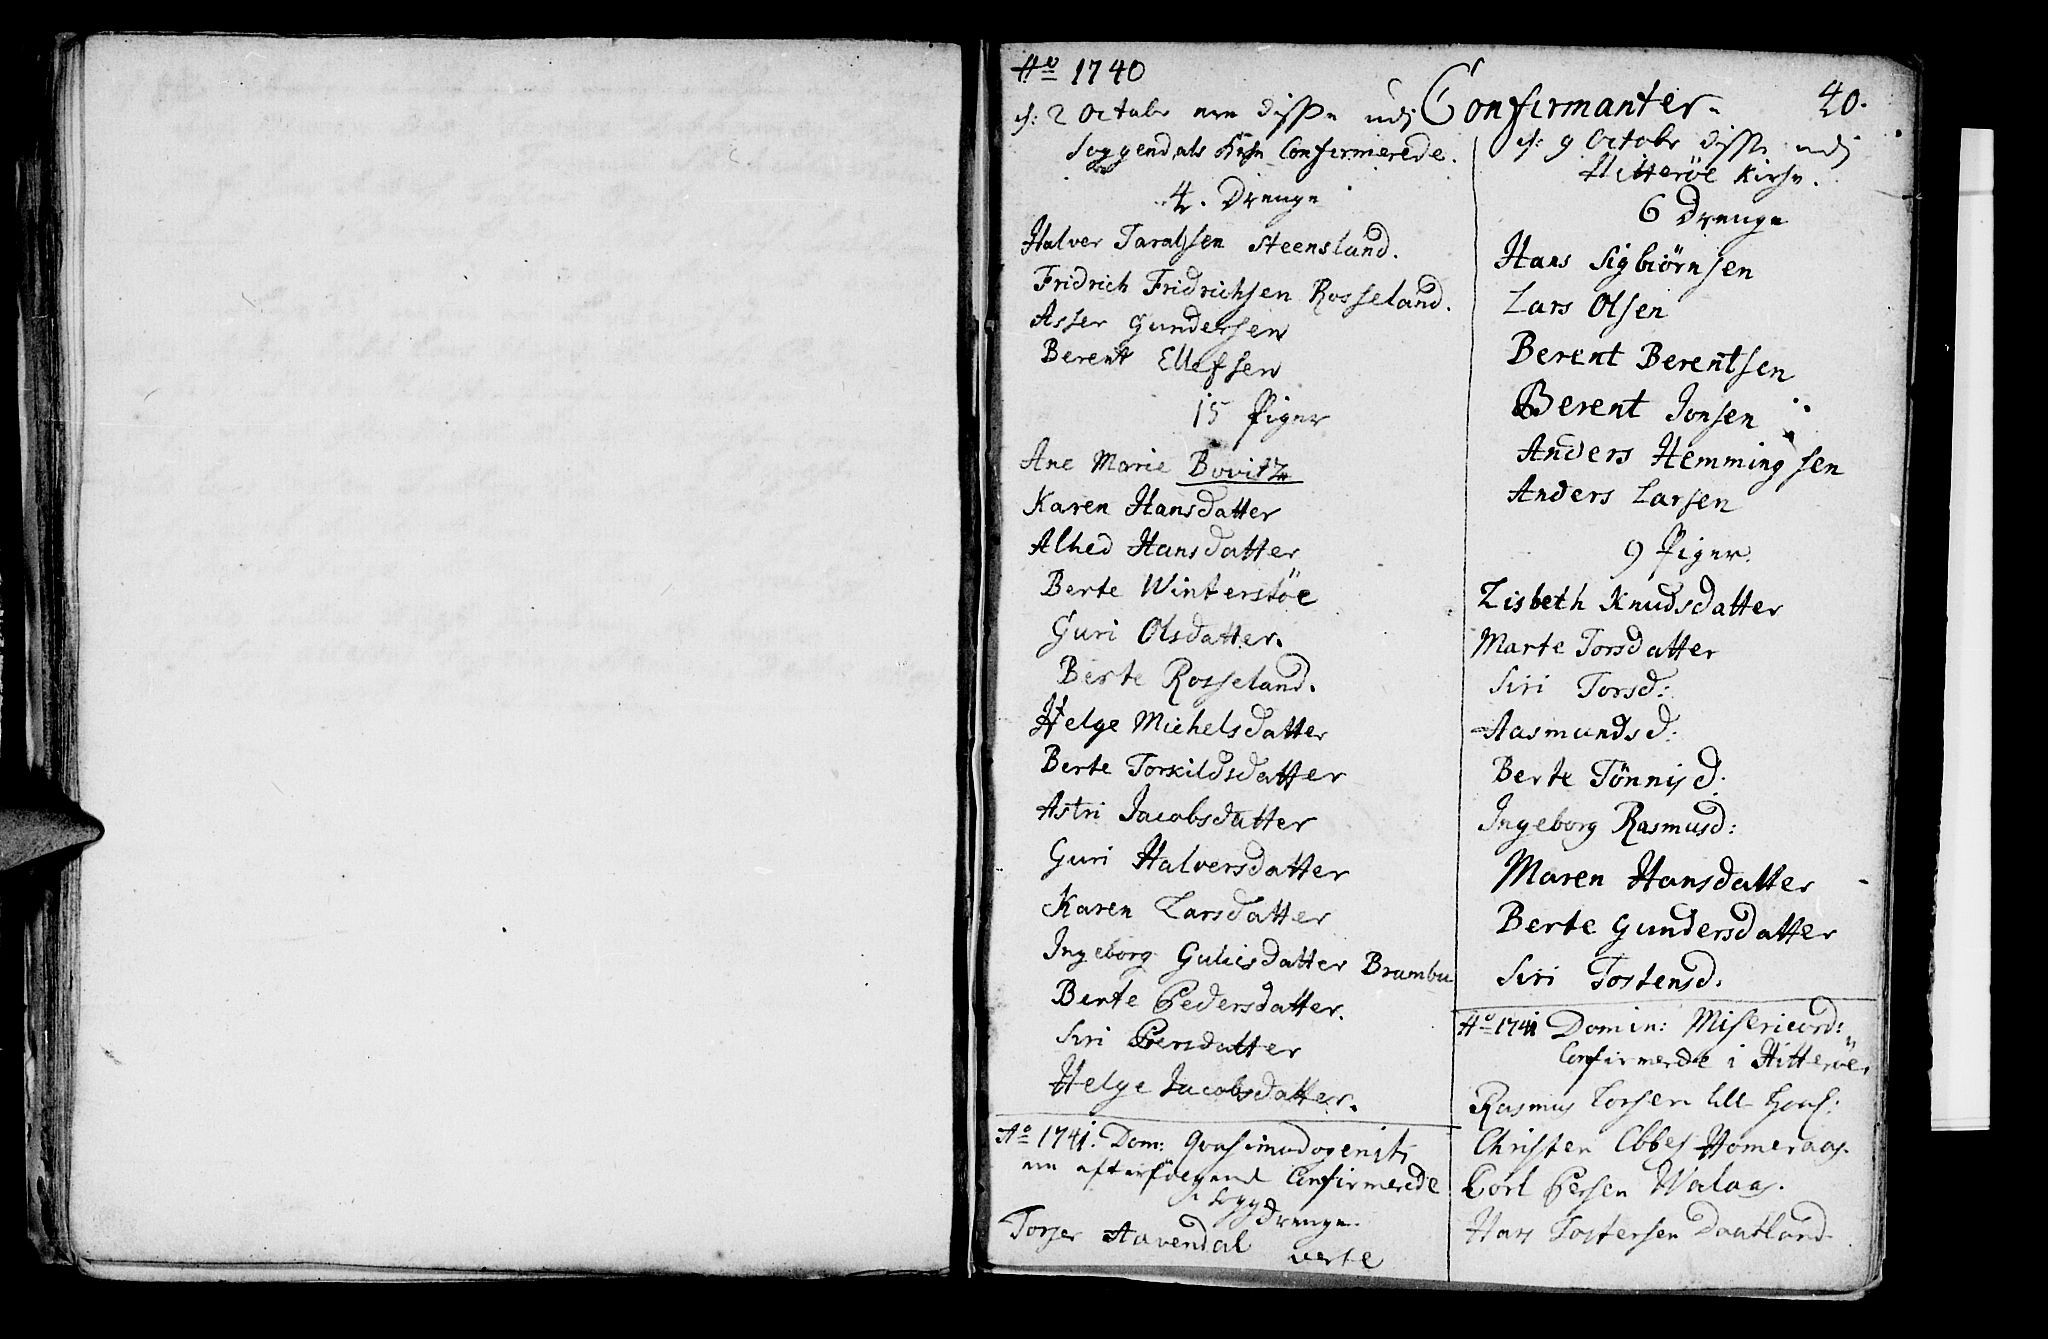 Ao 1740
Confirmanter.
40.
d: 2 Octobr ere disse udj
Soggendals Kirke Confirmerede.
4. Drenge
Halver Taralsen Steensland.
Fridrich Fridrichsen Rosseland.
Asser Gundersen
Berent Ellefsen
15 Piger
Ane Marie Bovitz
Karen Hansdatter
Alhed Hansdatter
Berte Winterstöe
Guri Olsdatter.
Berte Rosseland.
Helge Michelsdatter
Berte Torkildsdatter
Astri Jacobsdatter
Guri Halversdatter
Karen Larsdatter
Ingeborg Guliesdatter Brambu
Berte Pedersdatter.
Siri Persdatter
Helge Jacobsdatter.
Ao 1741. Dom: Qvasimodogenit:
ere efterfölgend Confirmerede
i Sogg
Drenge.
Torjer Aavendal
verte
d: 9 Octobr disse udj
Hitteröe Kirke.
6 Drenge
Hans Sigbiörnsen
Lars Olsen
Berent Berentsen
Berent Jonsen
Anders Hemmingsen
Anders Larsen
9 Piger.
Lisbeth Knudsdatter
Marte Torsdatter
Siri Torsd:
Aasmundsd:
Berte Tönnisd:
Ingeborg Rasmusd:
Maren Hansdatter
Berte Gundersdatter
Siri Tostensd.
Ao 1741 Domin: Misericord:
Confirmerede i Hitteröe.
Rasmus
Christen Ebbes Homeraas.
Corl Persen Walaas.
Hans Tostersen Daatland.